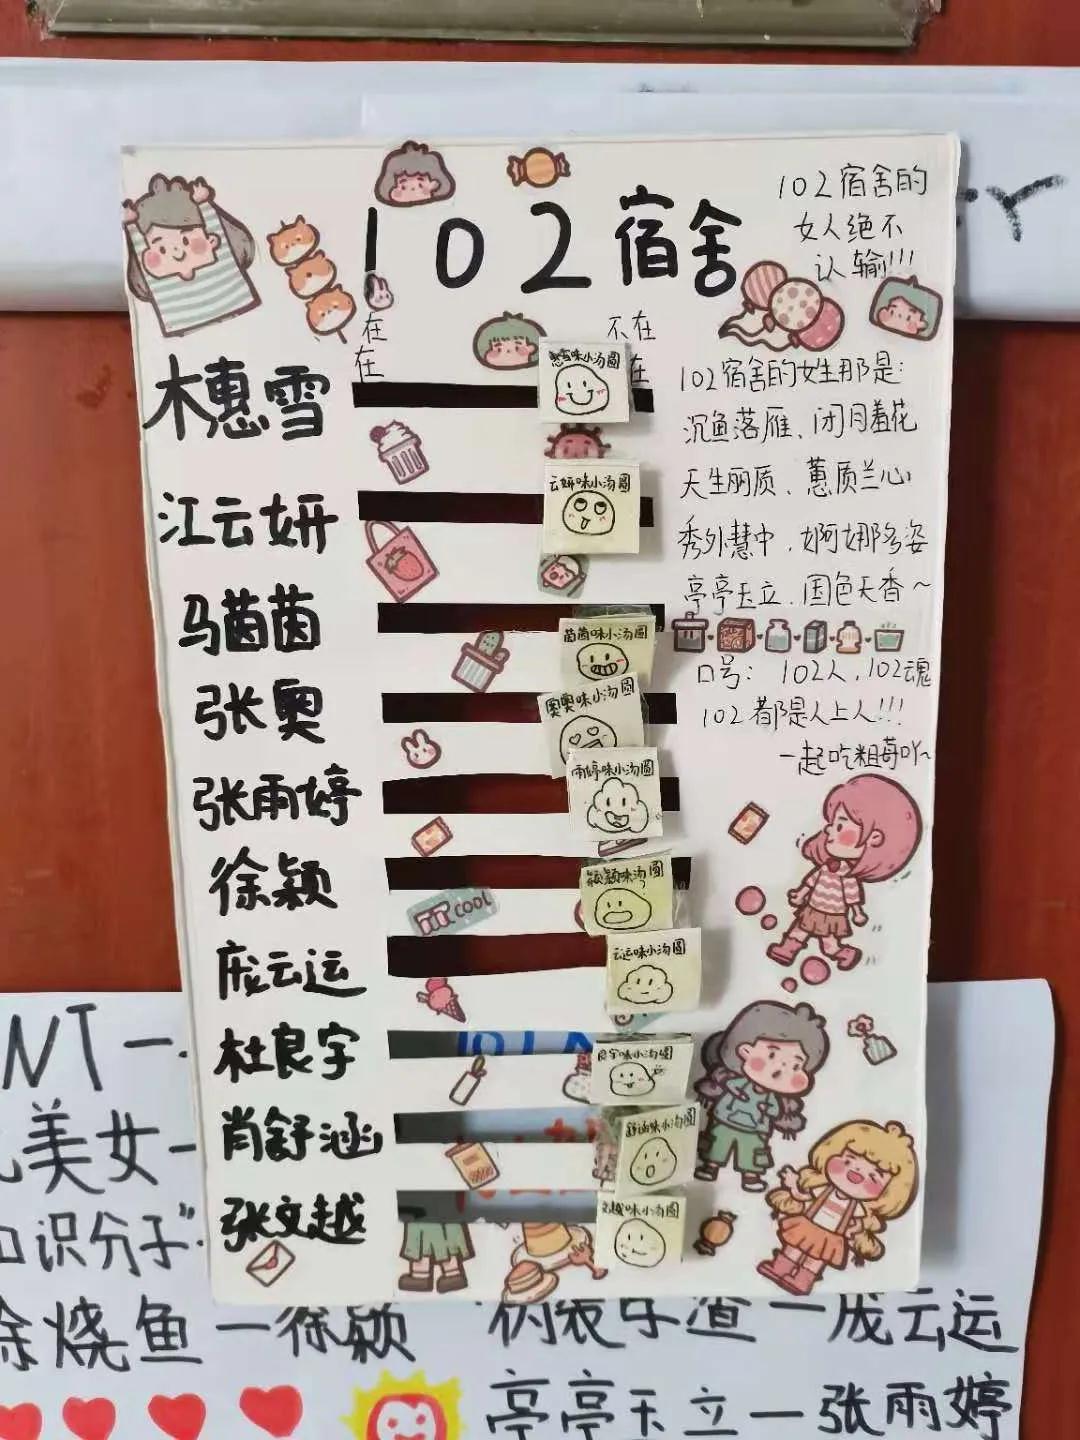 102宿舍
102宿舍的
女人绝不
认输!!!
在
不在
在
在
木惠雪
惠雪味小汤圆
江云妍
云妍味小汤圆
马茵茵
茵茵味小汤圆
张奥
奥奥味小汤圆
张雨婷
雨婷味小汤圆
徐颖
颖颖味小汤圆
庞云运
云运味小汤圆
杜良宇
良宇味小汤圆
肖舒涵
舒涵味小汤圆
张文越
文越味小汤圆
COOL
102宿舍的女生那是:
沉鱼落雁、闭月羞花
天生丽质、蕙质兰心
秀外慧中、婀娜多姿
亭亭玉立、国色天香~
口号: 102人,102魂
102都是人上人!!!
一起吃粗莓吖~
NT一
美女一
识分子”
烧鱼一徐颖
一庞云运
亭亭玉立一张雨婷